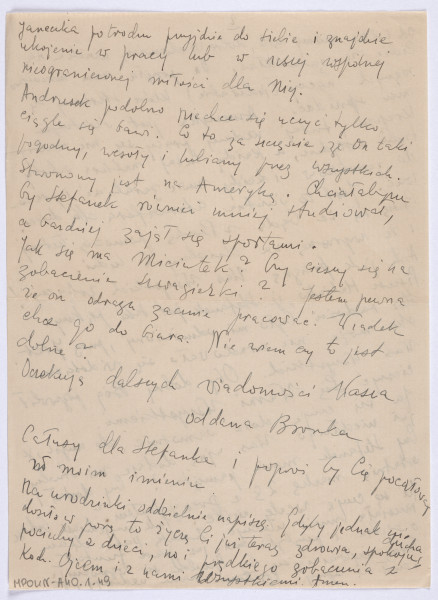 Janeczka potrochu przyjdzie do siebie i znajdzie
ukojenie w pracy lub w naszej wspólnej
nieograniczonej miłości dla Niej.
Andrusek podobno niechce się uczyć tylko
ciągle się bawi. Co to za szczęście, że On taki
pogodny, wesoły i lubiany przez wszystkich.
Stworzony jest na Amerykę. Chciałabym
by Stefanek również mniej studiował,
a bardziej zajął się sportami.
Jak się ma Micintek? Czy cieszy się na
zobaczenie szwagierki? Jestem pewna
że on odrazu zacznie pracować. Wiadek
chce go do biura. Nie wiem czy to jest
dobrze?
Oczekuję dalszych wiadomości Wasza
oddana Bronka
Całusy dla Stefanka i poproś by Cię pocałował
w moim imieniu
Na urodzinki oddzielnie napiszę. Gdyby jednak nie
doszło w porę to życzę Ci już teraz zdrowia, spokoju ducha
pociechy z dzieci, no i prędkiego zobaczenia z
Koch. Ojcem i z nami wszystkiemi
MPOLIN-A40.1.49